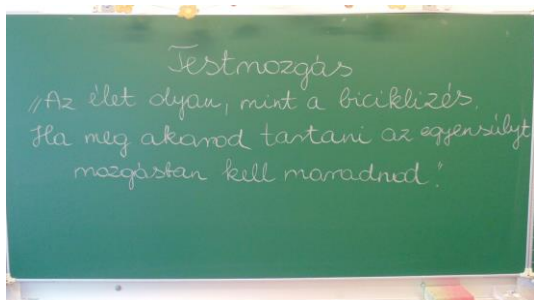 Testmozgás
„Az élet olyan, mint a biciklizés.
Ha meg akarod tartani az egyensúlyt
mozgásban kell maradnod."